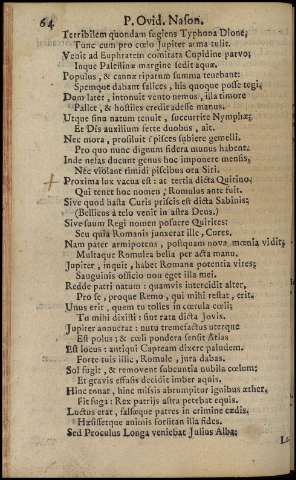 64 P. Ovid. Nason.
Terribilem quondam fugiens Typhona Dione,
Tunc cum pro cœlo Jupiter arma tulit.
Venit ad Euphratem comitata Cupidine parvo;
Inque Palestinæ margine sedit aquæ.
Populus, & cannæ riparum summa tenebant:
Spemque dabant salices, his quoque posse tegi.
Dum latet, intonuit vento nemus, illa timore
Pallet, & hostiles credit adesse manus.
Utque sinu natum tenuit, succurrite Nymphæ;
Et Dîs auxilium ferte duobus, ait.
Nec mora, prosiluit: pisces subiere gemelli.
Pro quo nunc dignum sidera munus habent.
Inde nefas ducunt genus hoc imponere mensis,
Nec violant timidi piscibus ora Siri.
Proxima lux vacua est: at tertia dicta Quirino,
Qui tenet hoc nomen, Romulus ante fuit.
Sive quod hasta Curis priscis est dicta Sabinis;
(Bellicus à telo venit in astra Deus.)
Sive suum Regi nomen posuere Quirites:
Seu quia Romanis junxerat ille, Cures.
Nam pater armipotens, postquam nova mœnia vidit;
Multaque Romulea bella per acta manu.
Jupiter, inquit, habet Romana potentia vires;
Sanguinis officio non eget illa mei.
Redde patri natum: quamvis intercidit alter,
Pro se, proque Remo, qui mihi restat, erit.
Unus erit, quem tu tolles in cœrula cœli;
Tu mihi dixisti: sint rata dicta Jovis.
Jupiter annuerat: nutu tremefactus uterque
Est polus; & cœli pondera sensit Atlas
Est locus: antiqui Capream dixere paludem.
Forte tuis illic, Romule, jura dabas.
Sol fugit, & removent subeuntia nubila cœlum;
Et gravis effusis decidit imber aquis.
Hinc tonat, hinc missis abrumpitur ignibus æther,
Fit fuga: Rex patrijs astra petebat equis.
Luctus erat, falsæque patres in crimine cædis,
Hæsissetque animis forsitan illa fides.
Sed Proculus Longa veniebat Julius Alba;